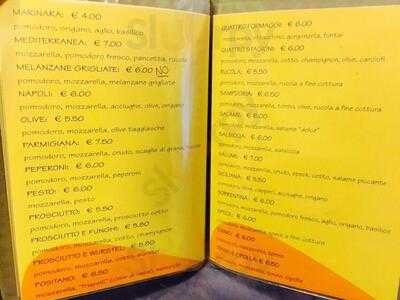 MARINARA: € 4.00
pomodoro, origano, aglio, basilico
MEDITERRANEA: € 7.00
mozzarella, pomodoro fresco, pancetta, rucola
MELANZANE GRIGLIATE: € 6.00 NO
pomodoro, mozzarella, melanzane grigliate
NAPOLI: € 6.00
pomodoro, mozzarella, acciughe, olive, origano
OLIVE: € 5.50
pomodoro, mozzarella, olive taggiasche
PARMIGIANA: € 7.50
pomodoro, mozzarella, crudo, scaglie di grana,
PEPERONI: € 6.00
pomodoro, mozzarella, peperoni
PESTO: € 6.00
pomodoro, mozzarella, pesto
PROSCIUTTO: € 5.50
pomodoro, mozzarella, prosciutto cotto
PROSCIUTTO E FUNGHI: € 
pomodoro, mozzarella, cotto, champignon
PROSCIUTTO E WURSTEL: € 
pomodoro, mozzarella, cotto, wurstel
POSITANO: € 6.50
mozzarella,
QUATTRO FORMAGGI: € 6.00
mozzarella, gorgonzola, fontal
QUATTRO STAGIONI: € 6.00
pomodoro, mozzarella, cotto, champignon, olive, carciofi
RUCOLA: € 5.50
pomodoro, mozzarella, rucola a fine cottura
€ 6.50
pomodoro, mozzarella, tonno, olive, rucola a fine cottura
SALAME: € 6.00
pomodoro, mozzarella, salame "dolce"
SALSICCIA: € 6.00
pomodoro, mozzarella, salsiccia
SALUMI: € 7.00
pomodoro, mozzarella, crudo, speck, cotto, salame piccante
SICILIANA: € 5.50
pomodoro, olive, capperi, acciughe, origano
SORRENTINA: € 6.00
pomodoro, mozzarella, pomodoro fresco, aglio, origano, basilico
SPECK: € 6.00
pomodoro, mozzarella, speck a fine cottura
TONNO: € 6.00
pomodoro, mozzarella, tonno
TONNO E CIPOLLA: € 6.50
pomodoro, mozzarella, tonno, cipolla